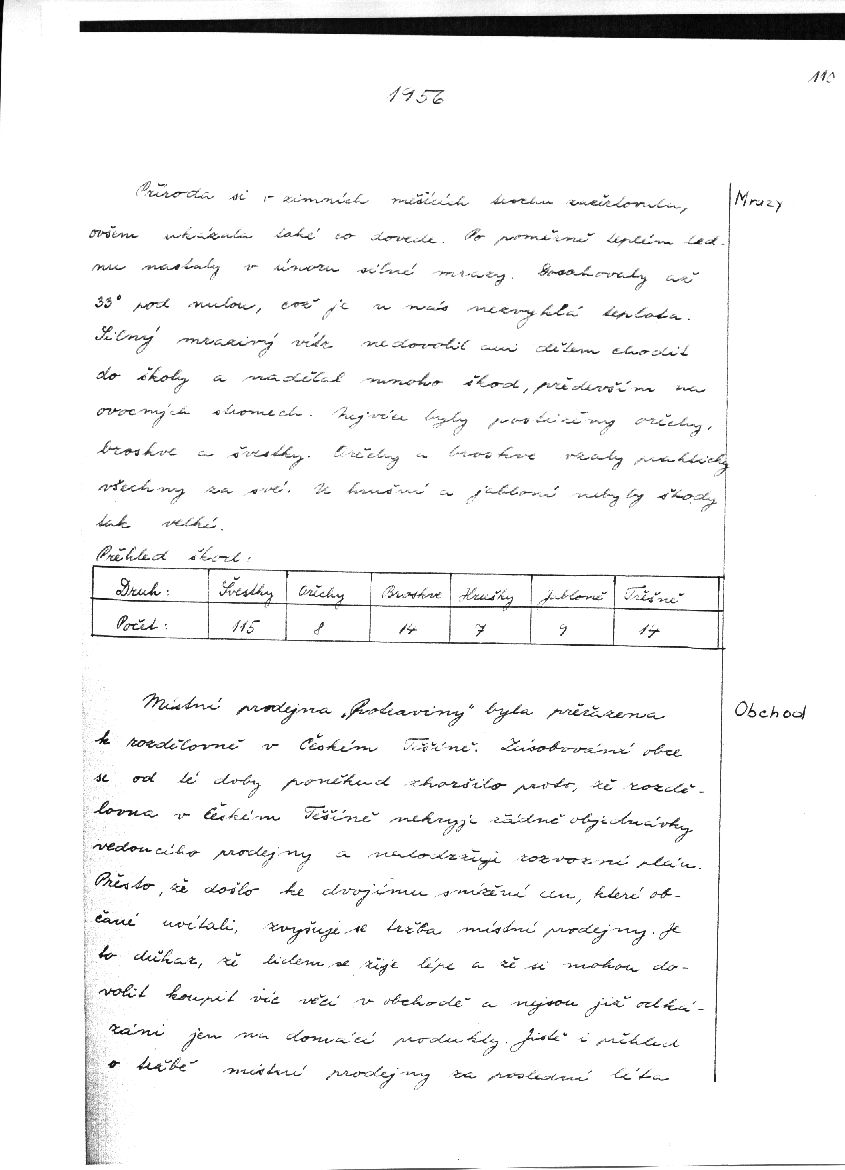 110
1956
Mrazy
Příroda si v zimních měsících trochu zažertovala,
ovšem ukázala také co dovede. Po poměrně teplém led-
nu nastaly v únoru silné mrazy. Dosahovaly až
33° pod nulou, což je u nás nezvyklá teplota.
Silný mrazivý vítr nedovolil ani dětem chodit
do školy a nadělal mnoho škod, především na
ovocných stromech. Nejvíce byly postiženy ořechy,
broskve a švestky. Ořechy a broskve vzaly prakticky
všechny za své. U hrušní a jabloní nebyly škody
tak velké.
Přehled škod:
Druh: Švestky Ořechy Broskve Hrušky Jabloně Třěšně
Počet: 115 8 14 7 9 14
Obchod
Místní prodejna „Potraviny" byla přěřazena
k rozdělovně v Českém Těšíně. Zásobování obce
se od té doby poněkud zhoršilo proto, žě rozdě-
lovna v Českém Těšíně nekryje žádné objednávky
vedoucího prodejny a nedodržuje rozvozní plán.
Přesto, žě došlo ke dvojímu snížění cen, které ob-
čané uvítali, zvyšuje se tržba místní prodejny. Je
to důkaz, žě lidem se žije lépe a žě si mohou do-
volit koupit víc věcí v obchodě a nejsou již odká-
záni jen na domácí produkty. Jistě i přěhled
o tržbě místní prodejny za poslední léta